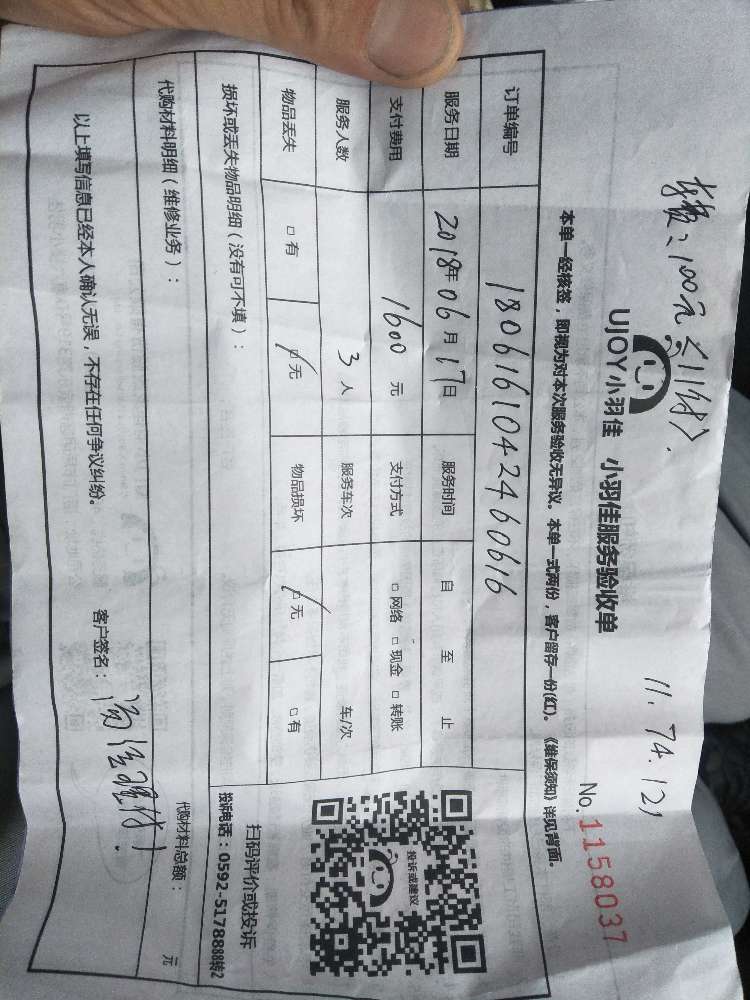 100元
11.74.121
UJOY小羽佳 小羽佳服务验收单
No.1158037
本单一经核签，即视为对本次服务验收无异议。本单一式两份，客户留存一份(红)。《维保须知》详见背面。
订单编号 1806161042460616
服务日期 2018年06月17日 服务时间 自 至 止
支付费用 1600元 支付方式 □网络 □现金 □转账
服务人数 3人 服务车次 车/次
物品丢失 □有 □无 物品损坏 □无 □有
损坏或丢失物品明细（没有可不填）：
投诉或建议
扫码评价或投诉
投诉电话：0592-5178888转2
代购材料明细（维修业务）：
代购材料总额： 元
以上填写信息已经本人确认无误，不存在任何争议纠纷。 客户签名：